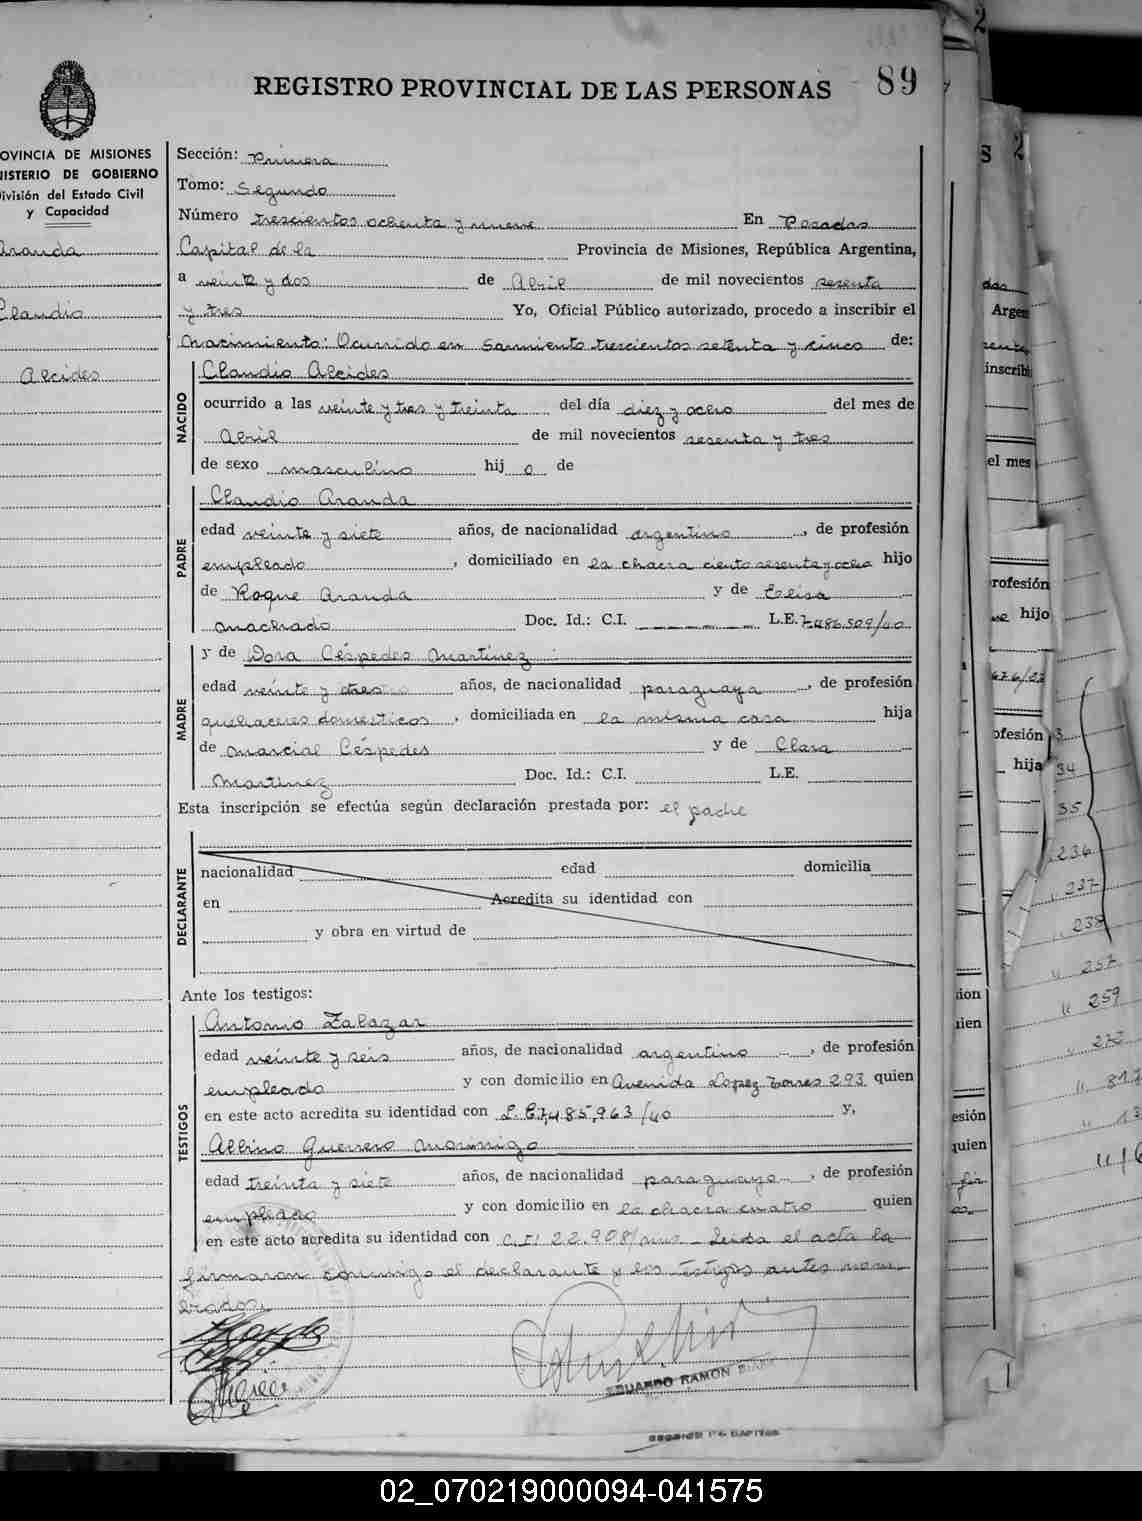 REGISTRO PROVINCIAL DE LAS PERSONAS 89
OVINCIA DE MISIONES
NISTERIO DE GOBIERNO
División del Estado Civil
y Capacidad
Aranda
Claudio
Alcides
Sección: Primera
Tomo: Segundo
Número trescientos ochenta y nueve En Posadas
Capital de la Provincia de Misiones, República Argentina,
a veinte y dos de Abril de mil novecientos sesenta
y tres Yo, Oficial Público autorizado, procedo a inscribir el
Nacimiento: Ocurrido en Sarmiento trescientos setenta y cinco de:
NACIDO
Claudio Alcides
ocurrido a las veinte y tres y treinta del día diez y ocho del mes de
Abril de mil novecientos sesenta y tres
de sexo masculino hij o de
PADRE
Claudio Aranda
edad veinte y siete años, de nacionalidad argentino, de profesión
empleado, domiciliado en la chacra ciento sesenta y ocho hijo
de Roque Aranda y de Elisa
Machado Doc. Id.: C.I. L.E. 7.486.509/40
MADRE
y de Dora Céspedes Martínez
edad veinte y tres años, de nacionalidad paraguaya, de profesión
quehaceres domesticos, domiciliada en la misma casa hija
de Marcial Céspedes y de Clara
Martinez Doc. Id.: C.I. L.E.
Esta inscripción se efectúa según declaración prestada por: el padre
DECLARANTE
nacionalidad edad domicilia
en Acredita su identidad con
y obra en virtud de
Ante los testigos:
TESTIGOS
Antonio Zalazar
edad veinte y seis años, de nacionalidad argentino, de profesión
empleado y con domicilio en Avenida Lopez Torres 293 quien
en este acto acredita su identidad con L.E. 7,485,963/40 y,
Albino Guerrero Morinigo
edad treinta y siete años, de nacionalidad paraguayo, de profesión
empleado y con domicilio en la chacra cuatro quien
en este acto acredita su identidad con C.I. 22.908/mns - Leida el acta la
firmaron conmigo el declarante y los testigos antes nom-
brados.
EDUARDO RAMON
s 2
Argen
inscrib
el mes
rofesión
hijo
ofesión
hija
34
35
236
237
238
257
259
sion
uien
esión
quien
02_070219000094-041575